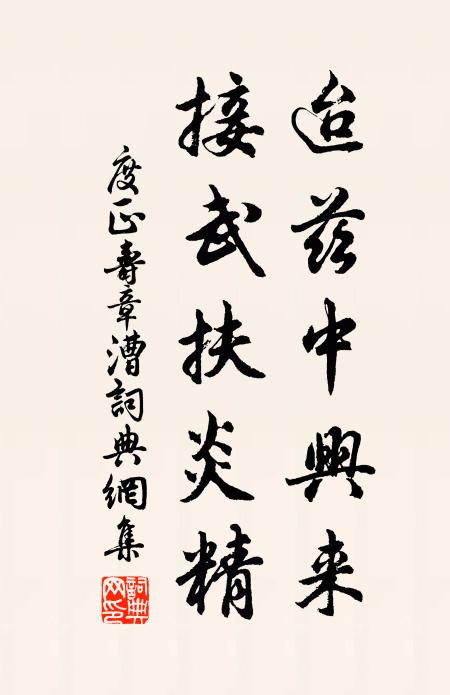 迨茲中興来
接武扶炎精
度正壽章漕詞典網集
詞典网印